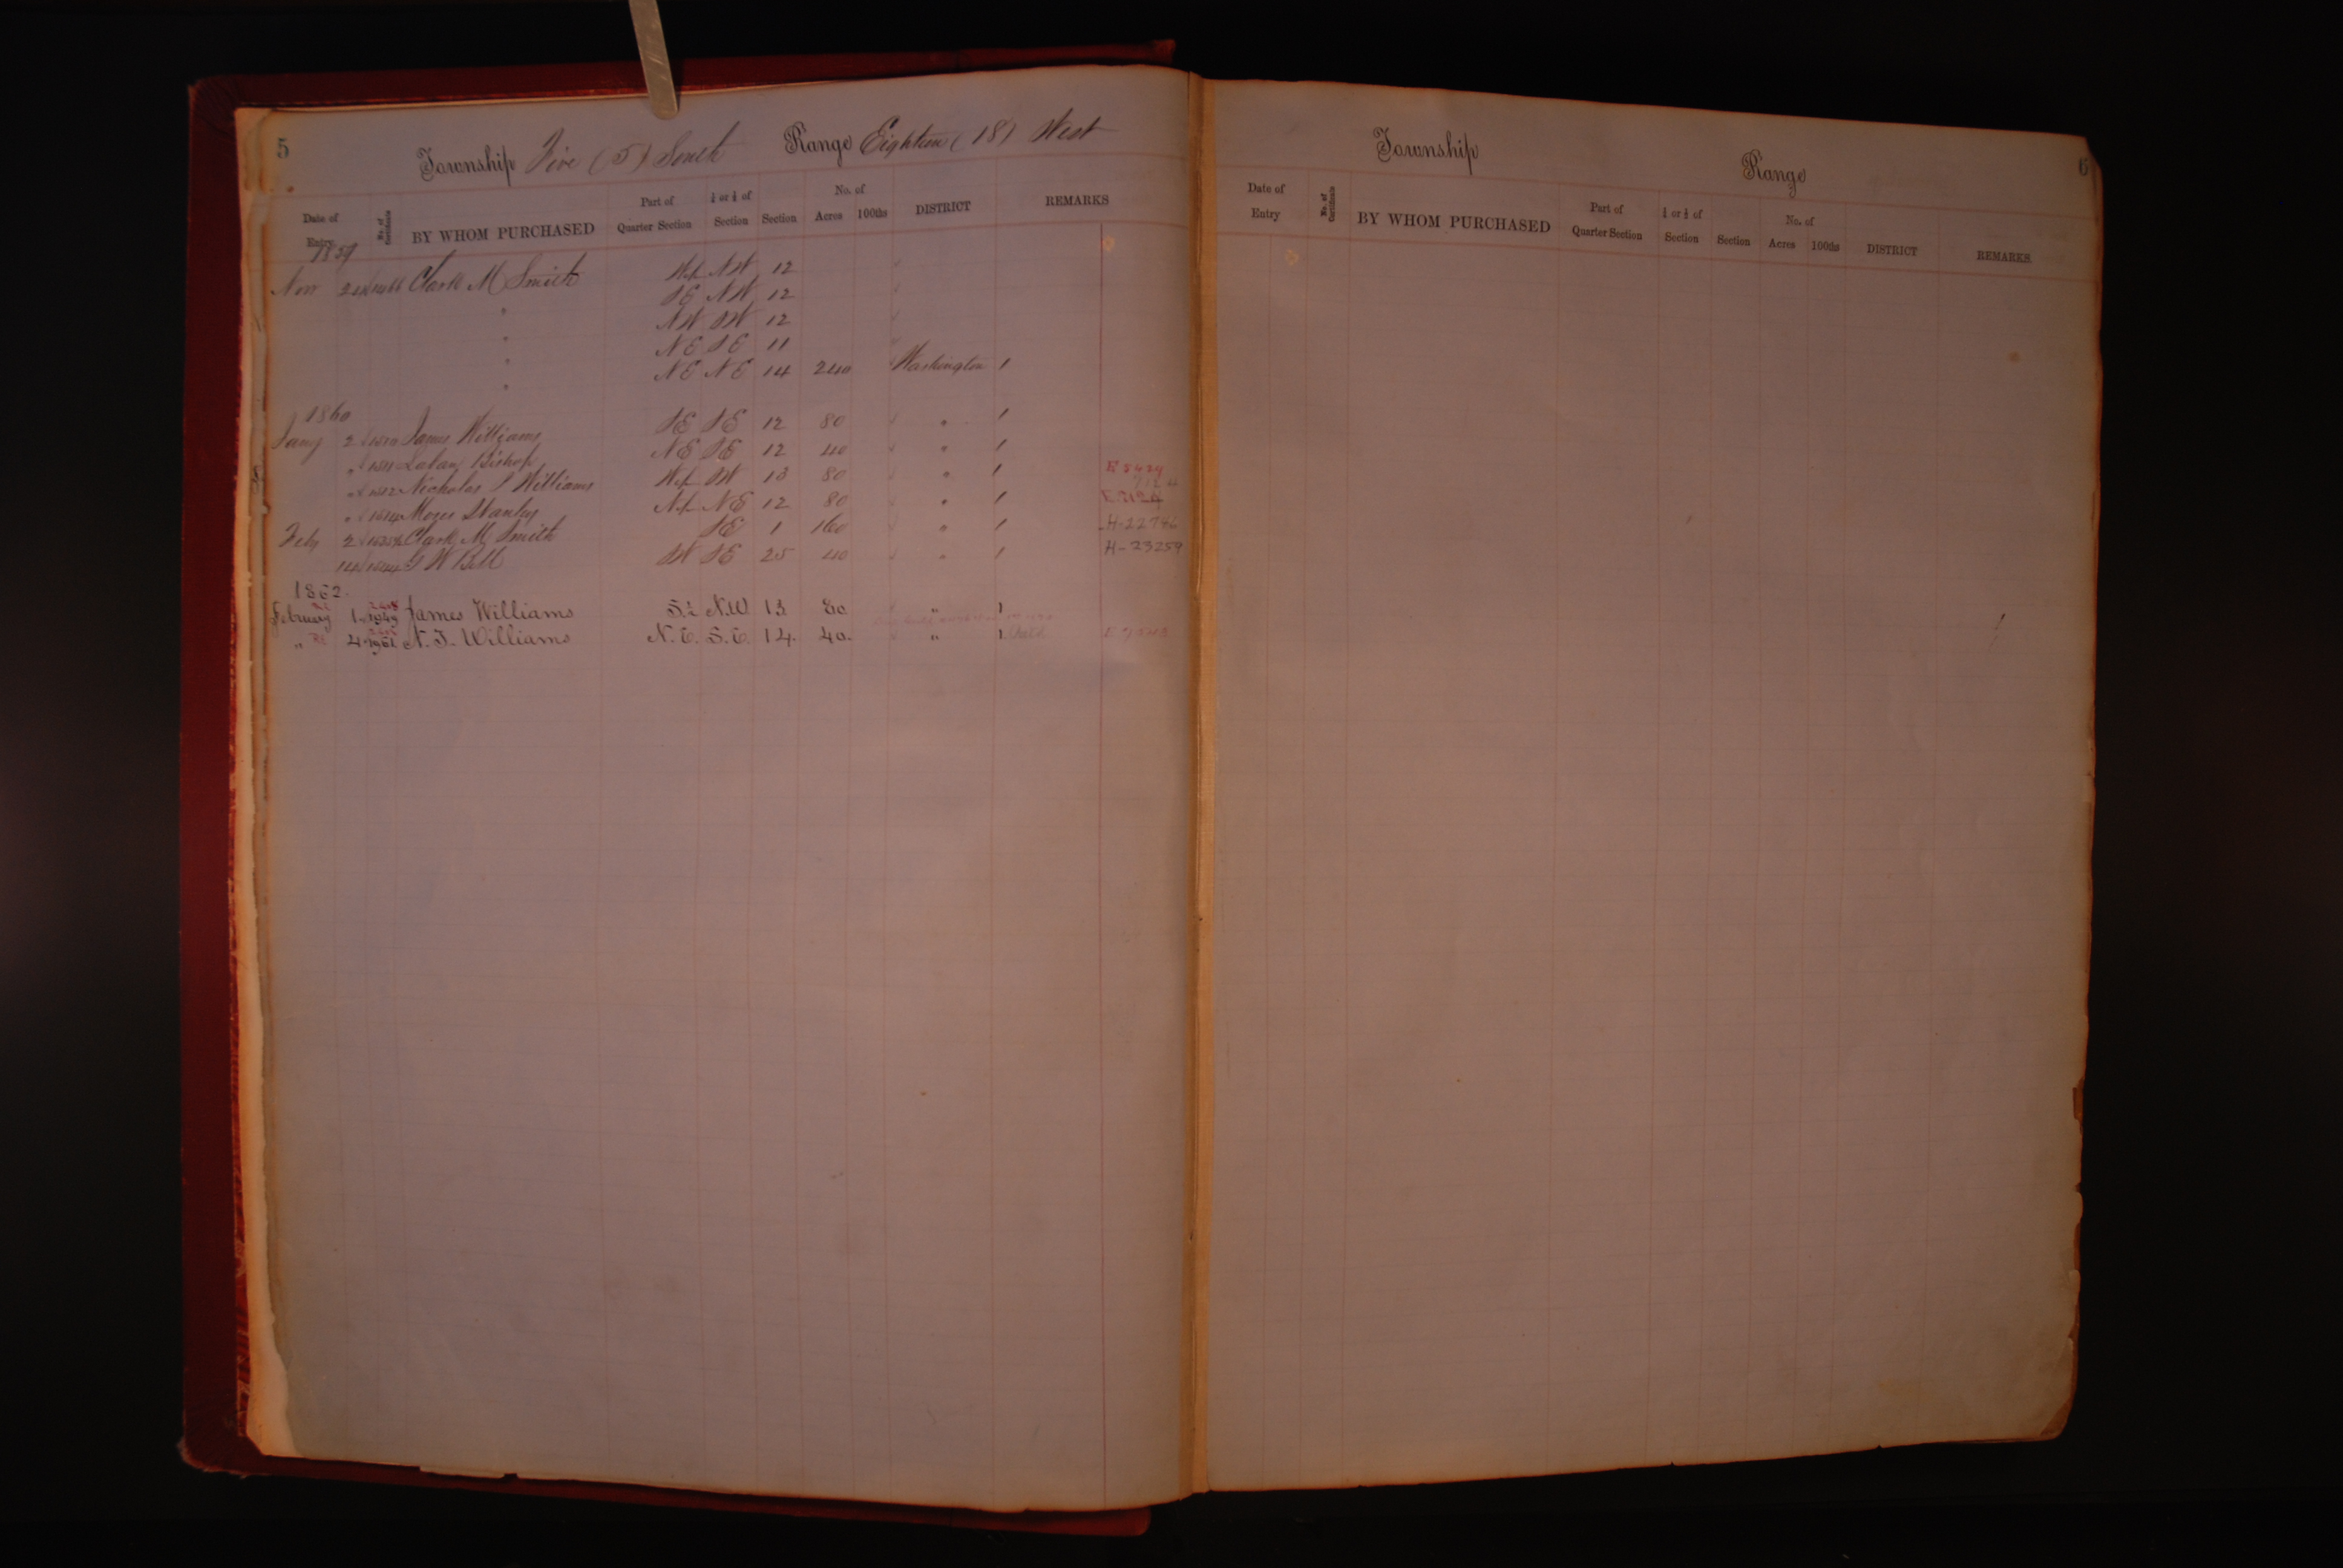 5
Township Five (5) South Range Eighteen (18) West
Date of Entry No. of Certificate BY WHOM PURCHASED Part of Quarter Section ¼ or ½ of Section Section No. of Acres 100ths DISTRICT REMARKS
1859
Nov 24 Clark M Smith W½ NW 12
" SE NW 12
" NW SW 12
" NE SE 11
" NE NE 14 240 Washington 1
1860
Jany 2 James Williams SE SE 12 80 " 1
" 1511 Bishop NE SE 12 40 " 1
" 1512 Nicholas Williams W½ SW 13 80 " 1 E 5424
7124
" 1514 Moses Stanley N½ NE 12 80 " 1 E 7124
Feby 2 Clark M Smith SE 1 160 " 1 H-22746
14 W Bell SW SE 25 40 " 1 H-23259
1862.
February 1 1949 James Williams S.½ N.W. 13 80 " 1
" 4 1961 N. J. Williams N.E. S.E. 14. 40. " 1
Township Range 6
Date of Entry No. of Certificate BY WHOM PURCHASED Part of Quarter Section ¼ or ½ of Section Section No. of Acres 100ths DISTRICT REMARKS